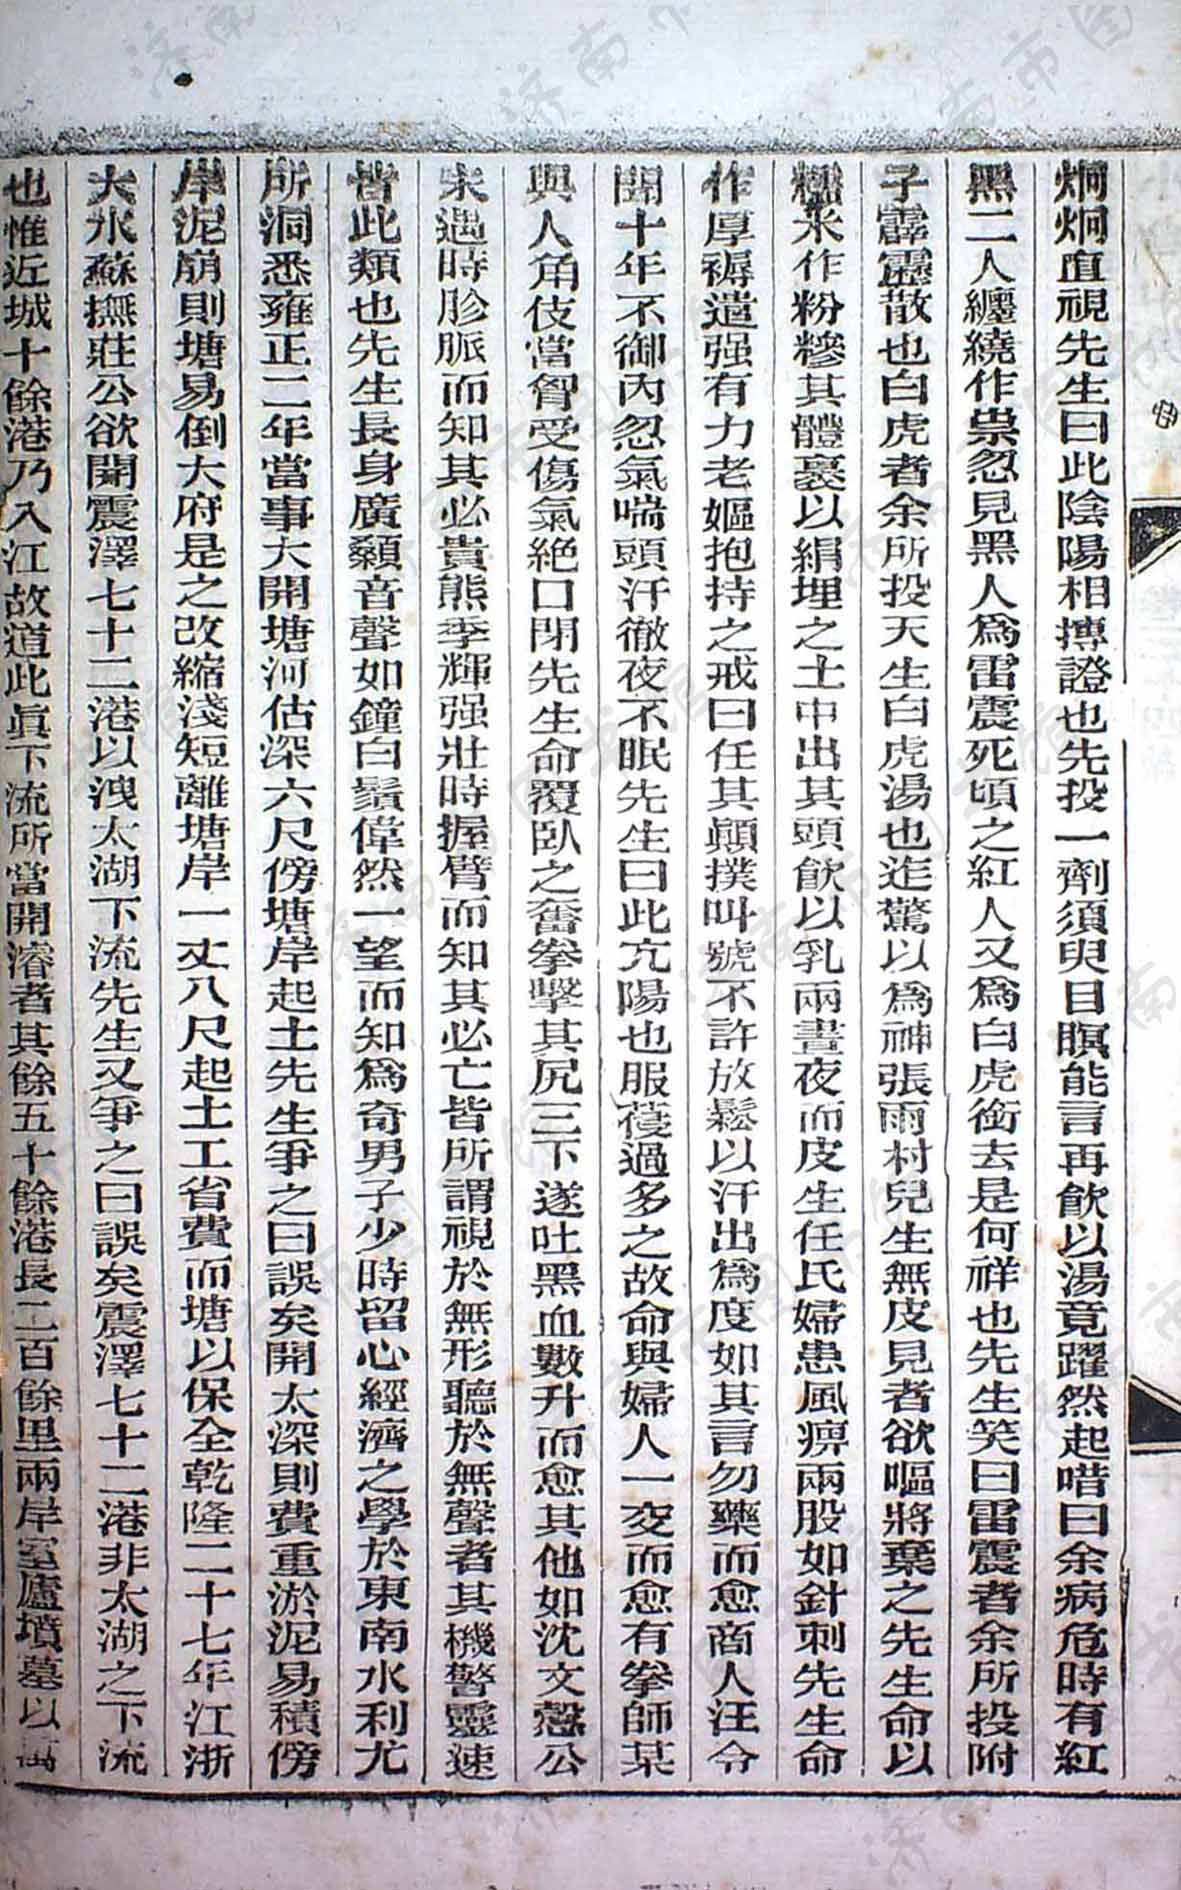 炯炯直視先生曰此陰陽相摶證也先投一劑須臾目瞑能言再飲以湯竟躍然起唶曰余病危時有紅
黑二人纏繞作祟忽見黑人爲雷震死頃之紅人又爲白虎銜去是何祥也先生笑曰雷震者余所投附
子霹靂散也白虎者余所投天生白虎湯也迮驚以爲神張雨村兒生無皮見者欲嘔將棄之先生命以
糯米作粉糝其體裹以絹埋之土中出其頭飮以乳兩晝夜而皮生任氏婦患風痹兩股如針刺先生命
作厚褥遣强有力老嫗抱持之戒曰任其顚撲叫號不許放鬆以汗出爲度如其言勿藥而愈商人汪令
聞十年不御內忽氣喘頭汗徹夜不眠先生曰此亢陽也服葠過多之故命與婦人一交而愈有拳師某
與人角伎當胷受傷氣絕口閉先生命覆臥之奮拳擊其尻三下遂吐黑血數升而愈其他如沈文愨公
未遇時胗脈而知其必貴熊季輝强壯時握臂而知其必亡皆所謂視於無形聽於無聲者其機警靈速
皆此類也先生長身廣顙音聲如鐘白鬚偉然一望而知爲奇男子少時留心經濟之學於東南水利尤
所洞悉雍正二年當事大開塘河估深六尺傍塘岸起土先生爭之曰誤矣開太深則費重淤泥易積傍
岸泥崩則塘易倒大府是之改縮淺短離塘岸一丈八尺起土工省費而塘以保全乾隆二十七年江浙
大水蘇撫莊公欲開震澤七十二港以洩太湖下流先生又爭之曰誤矣震澤七十二港非太湖之下流
也惟近城十餘港乃入江故道此眞下流所當開濬者其餘五十餘港長二百餘里兩岸室廬墳墓以萬